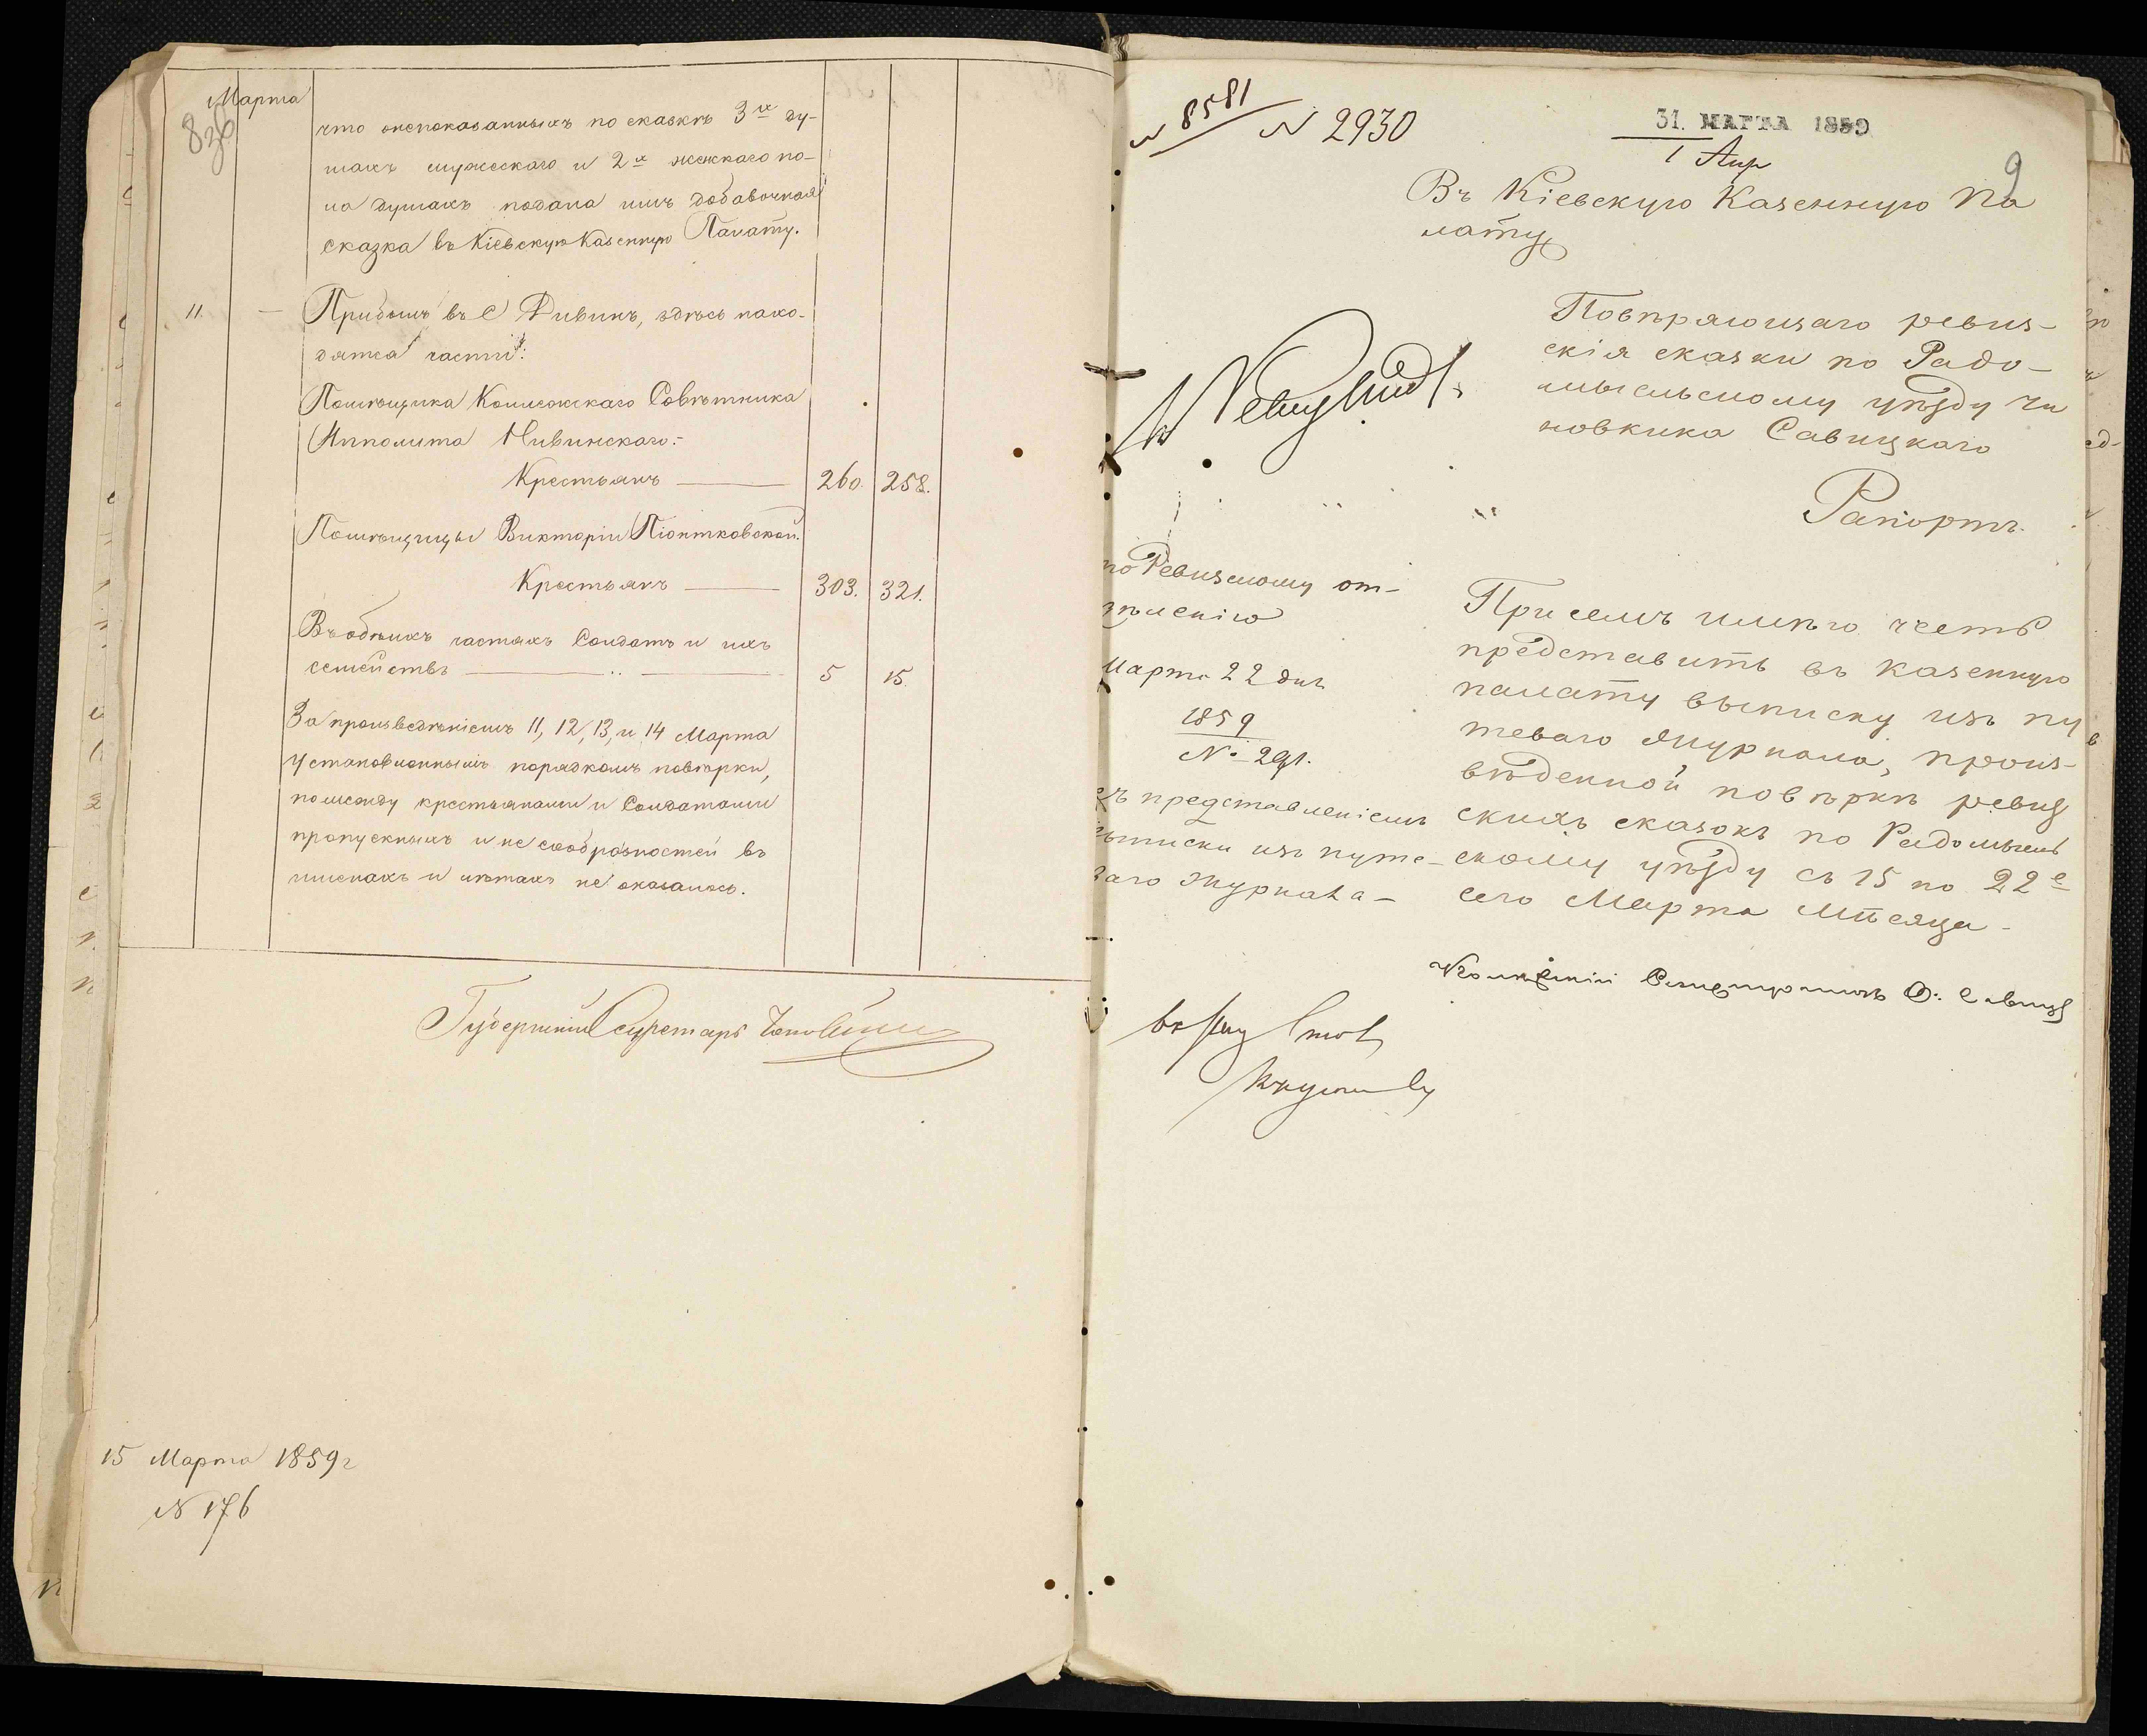 Марта
8 зв
что непоказаннымъ по сказкѣ 3хъ ду-
шамъ мужескаго и 2хъ женскаго по-
ла душахъ подана имъ добавочная
сказка въ Кіевскую Казенную Палату.
11. — Прибылъ въ С Дивинъ, здѣсь нахо-
дятся части:
Помѣщика Коллежскаго Совѣтника
Ипполита Нивинскаго:-
Крестьянъ — 260. 258.
Помѣщицы Викторіи Піонтковской.
Крестьянъ — 303. 321.
Въ обѣихъ частяхъ Солдатъ и ихъ
семействъ — 5 15.
За произведѣніемъ 11, 12, 13, и 14 Марта
установленнымъ порядкомъ повѣрки,
по между крестьянами и Солдатами
пропускныхъ и не сообразностей въ
именахъ и лѣтахъ не оказалось.
Губернскій Секретарь
15 Марта 1859 г
N 176
N 8581 N 2930
31. МАРТА 1859
1 Апр
9
Въ Кіевскую Казенную Па
лату
Повѣряющаго ревиз-
скія сказки по Радо-
мысльскому уѣзду чи
новника Савицкаго
Рапортъ.
по Ревизскому от-
дѣленію
Марта 22 дня
1859
№ 291.
съ представленіемъ
выписки изъ путе-
ваго журнала -
При семъ имѣю честь
представить въ казенную
палату выписку изъ пу
теваго журнала, произ-
вѣденной повѣркѣ ревиз
скихъ сказокъ по Радомысль
скому уѣзду съ 15 по 22е
сего Марта Мѣсяца -
Коллежскій Регистраторъ Савиц